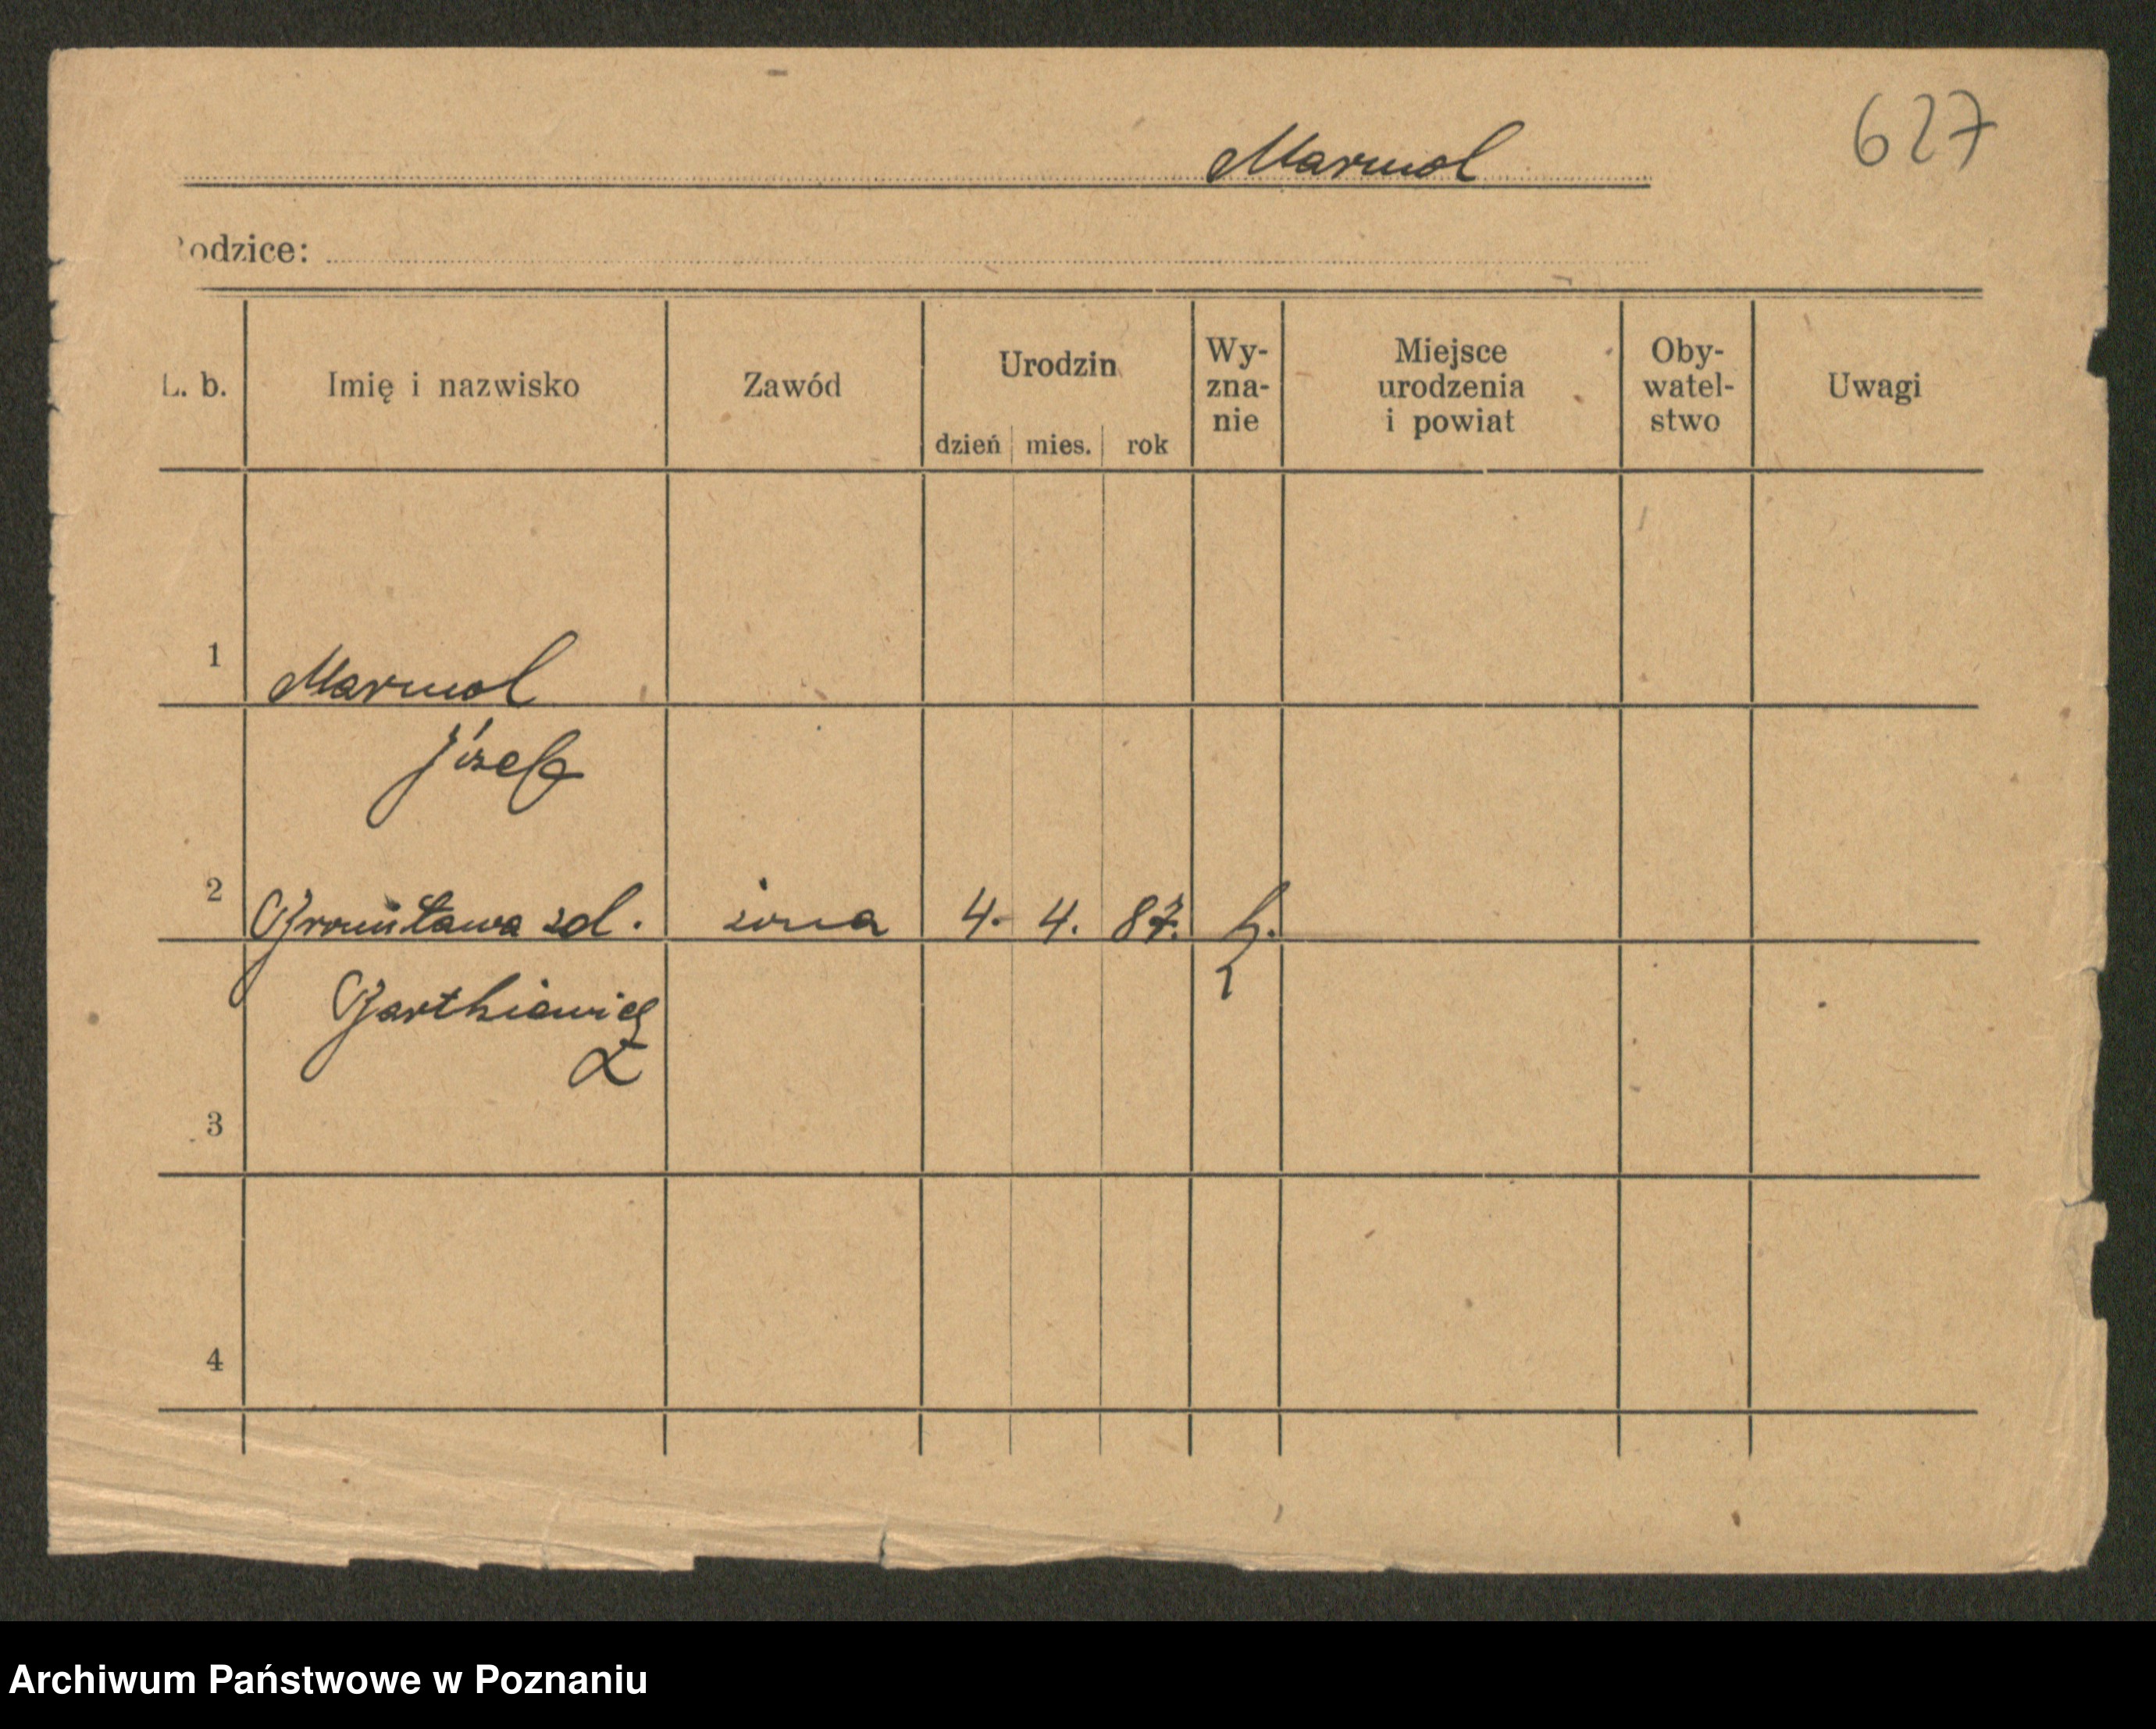 627
Marmol
Rodzice:
L. b.
Imię i nazwisko
Zawód
Urodzin
dzień mies. rok
Wy-
zna-
nie
Miejsce
urodzenia
i powiat
Oby-
watel-
stwo
Uwagi
1 Marmol
Józef
2 Bronisława zd. żona 4. 4. 87. k.
Bartkiewicz
3
4
Archiwum Państwowe w Poznaniu